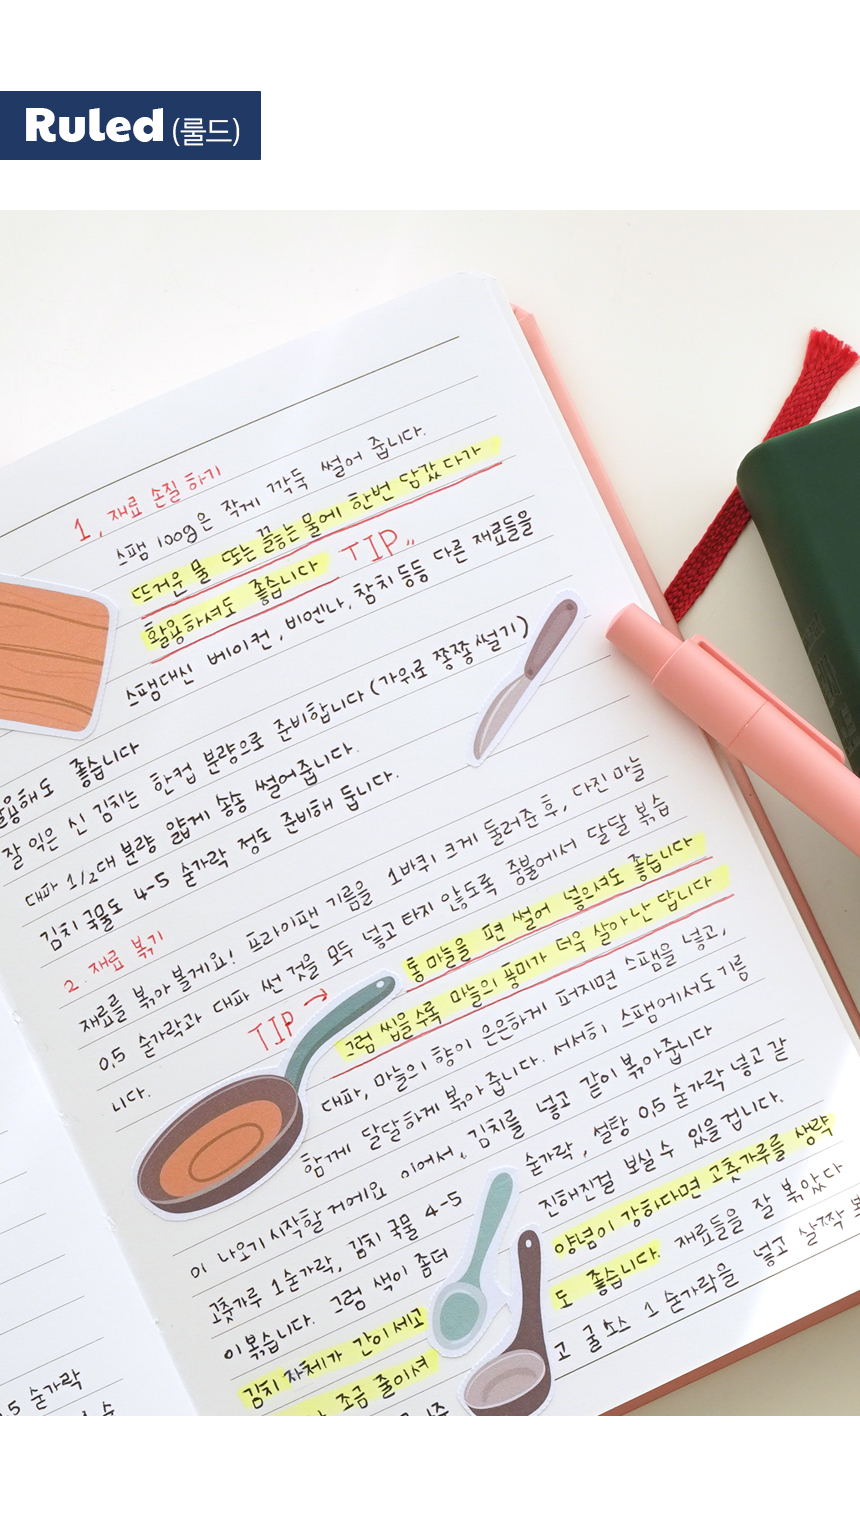 Ruled (룰드)
1. 재료 손질 하기
스팸 100g은 작게 깍둑 썰어 줍니다.
뜨거운 물 또는 끓는 물에 한번 담갔다가
활용하셔도 좋습니다 TIP
스팸대신 베이컨, 비엔나, 참치 등등 다른 재료들을
활용해도 좋습니다
잘 익은 신 김치는 한컵 분량으로 준비합니다 (가위로 쫑쫑 썰기)
대파 1/2대 분량 얇게 송송 썰어줍니다.
김치 국물도 4-5 숟가락 정도 준비해 둡니다.
2. 재료 볶기
재료를 볶아 볼게요! 프라이팬 기름을 1바퀴 크게 둘러준 후, 다진 마늘
0.5 숟가락과 대파 썬 것을 모두 넣고 타지 않도록 중불에서 달달 볶습
니다.
TIP → 통마늘을 편 썰어 넣으셔도 좋습니다
그럼 씹을수록 마늘의 풍미가 더욱 살아난 답니다
대파, 마늘의 향이 은은하게 퍼지면 스팸을 넣고,
함께 달달하게 볶아줍니다. 서서히 스팸에서도 기름
이 나오기 시작할 거에요 이어서, 김치를 넣고 같이 볶아줍니다
고춧가루 1숟가락, 김치 국물 4-5 숟가락, 설탕 0.5 숟가락 넣고 같
이 볶습니다. 그럼 색이 좀더 진해진걸 보실 수 있을겁니다.
김치 자체가 간이 세고 양념이 강하다면 고춧가루를 생략
조금 줄이셔도 좋습니다. 재료들을 잘 볶았다
고 굴소스 1 숟가락을 넣고 살짝
5 숟가락
수